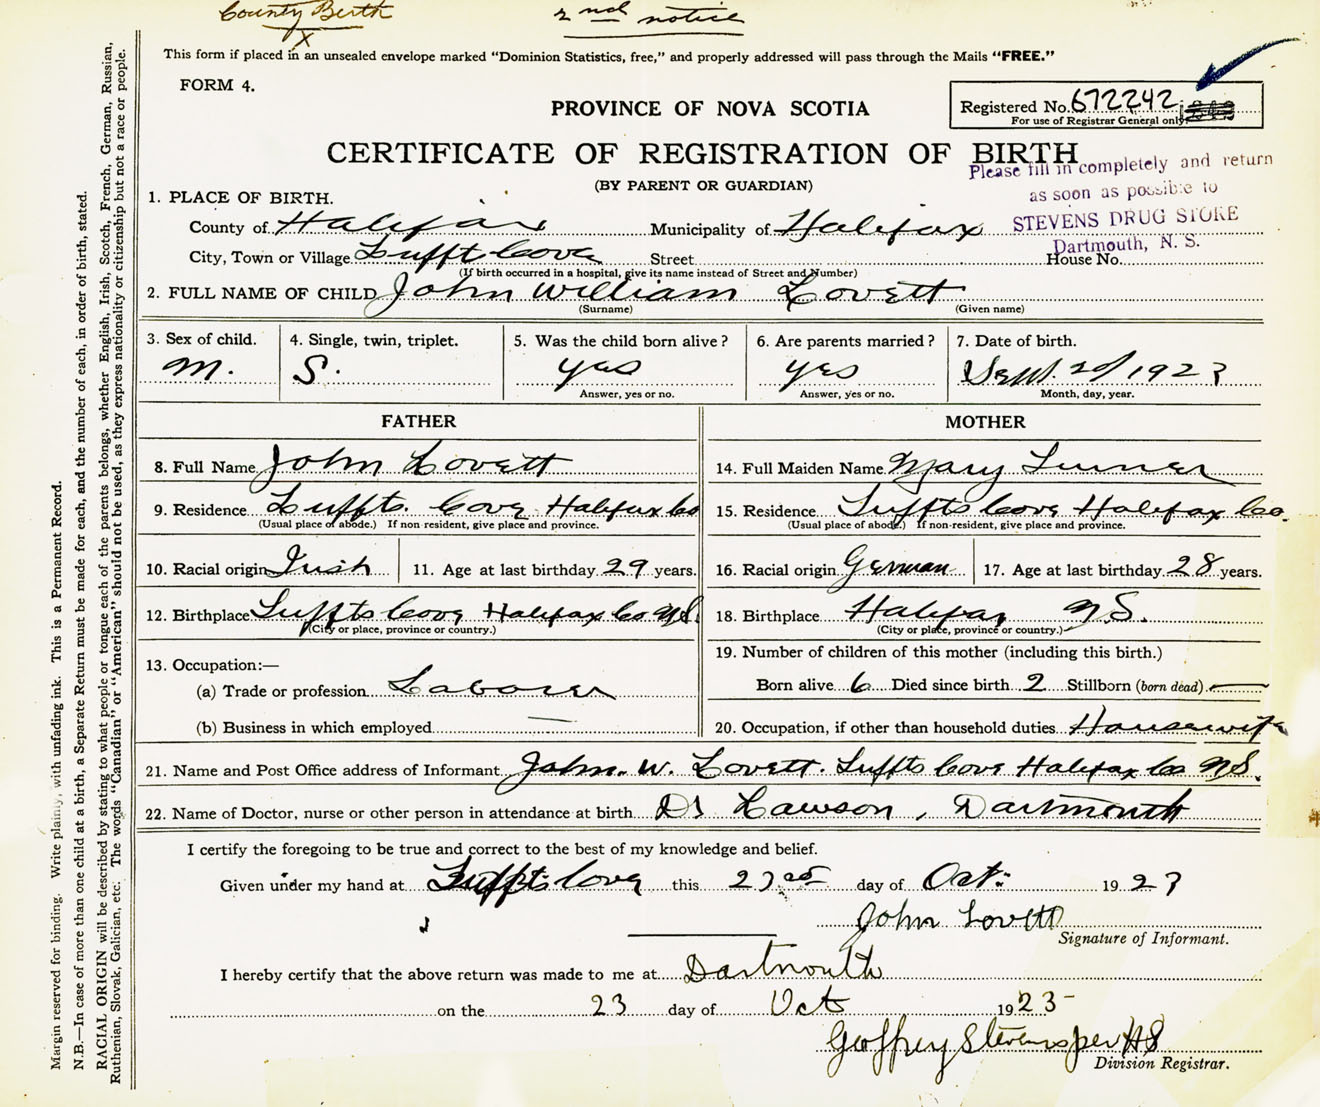 County Birth
X
2nd notice
This form if placed in an unsealed envelope marked “Dominion Statistics, free,” and properly addressed will pass through the Mails “FREE.”
FORM 4.
PROVINCE OF NOVA SCOTIA
Registered No. 672242
For use of Registrar General only.
CERTIFICATE OF REGISTRATION OF BIRTH
(BY PARENT OR GUARDIAN)
Please fill in completely and return
as soon as possible to
STEVENS DRUG STORE
Dartmouth, N. S.
1. PLACE OF BIRTH.
County of Halifax Municipality of Halifax
City, Town or Village Tuffts Cove Street House No.
(If birth occurred in a hospital, give its name instead of Street and Number)
2. FULL NAME OF CHILD John William Lovett
(Surname) (Given name)
3. Sex of child. 4. Single, twin, triplet. 5. Was the child born alive? 6. Are parents married? 7. Date of birth.
M. S. yes yes Sept. 20/1923
Answer, yes or no. Answer, yes or no. Month, day, year.
FATHER MOTHER
8. Full Name John Lovett 14. Full Maiden Name Mary Turner
9. Residence Tuffts Cove Halifax Co 15. Residence Tuffts Cove Halifax Co.
(Usual place of abode.) If non-resident, give place and province. (Usual place of abode.) If non-resident, give place and province.
10. Racial origin Irish 11. Age at last birthday 29 years. 16. Racial origin German 17. Age at last birthday 28 years.
12. Birthplace Tuffts Cove Halifax Co N.S. 18. Birthplace Halifax N.S.
(City or place, province or country.) (City or place, province or country.)
13. Occupation:— 19. Number of children of this mother (including this birth.)
(a) Trade or profession Laborer Born alive 6 Died since birth 2 Stillborn (born dead) —
(b) Business in which employed — 20. Occupation, if other than household duties Housewife
21. Name and Post Office address of Informant John. W. Lovett. Tuffts Cove Halifax Co N.S.
22. Name of Doctor, nurse or other person in attendance at birth Dr Lawson, Dartmouth
I certify the foregoing to be true and correct to the best of my knowledge and belief.
Given under my hand at Tuffts Cove this 22nd day of Oct. 1923
John Lovett
Signature of Informant.
I hereby certify that the above return was made to me at Dartmouth
on the 23 day of Oct 1923
Geoffrey Stevens per HS
Division Registrar.
Margin reserved for binding. Write plainly, with unfading ink. This is a Permanent Record.
N.B.—In case of more than one child at a birth, a Separate Return must be made for each, and the number of each, in order of birth, stated.
RACIAL ORIGIN will be described by stating to what people or tongue each of the parents belongs, whether English, Irish, Scotch, French, German, Russian,
Ruthenian, Slovak, Galician, etc. The words “Canadian” or “American” should not be used, as they express nationality or citizenship but not a race or people.